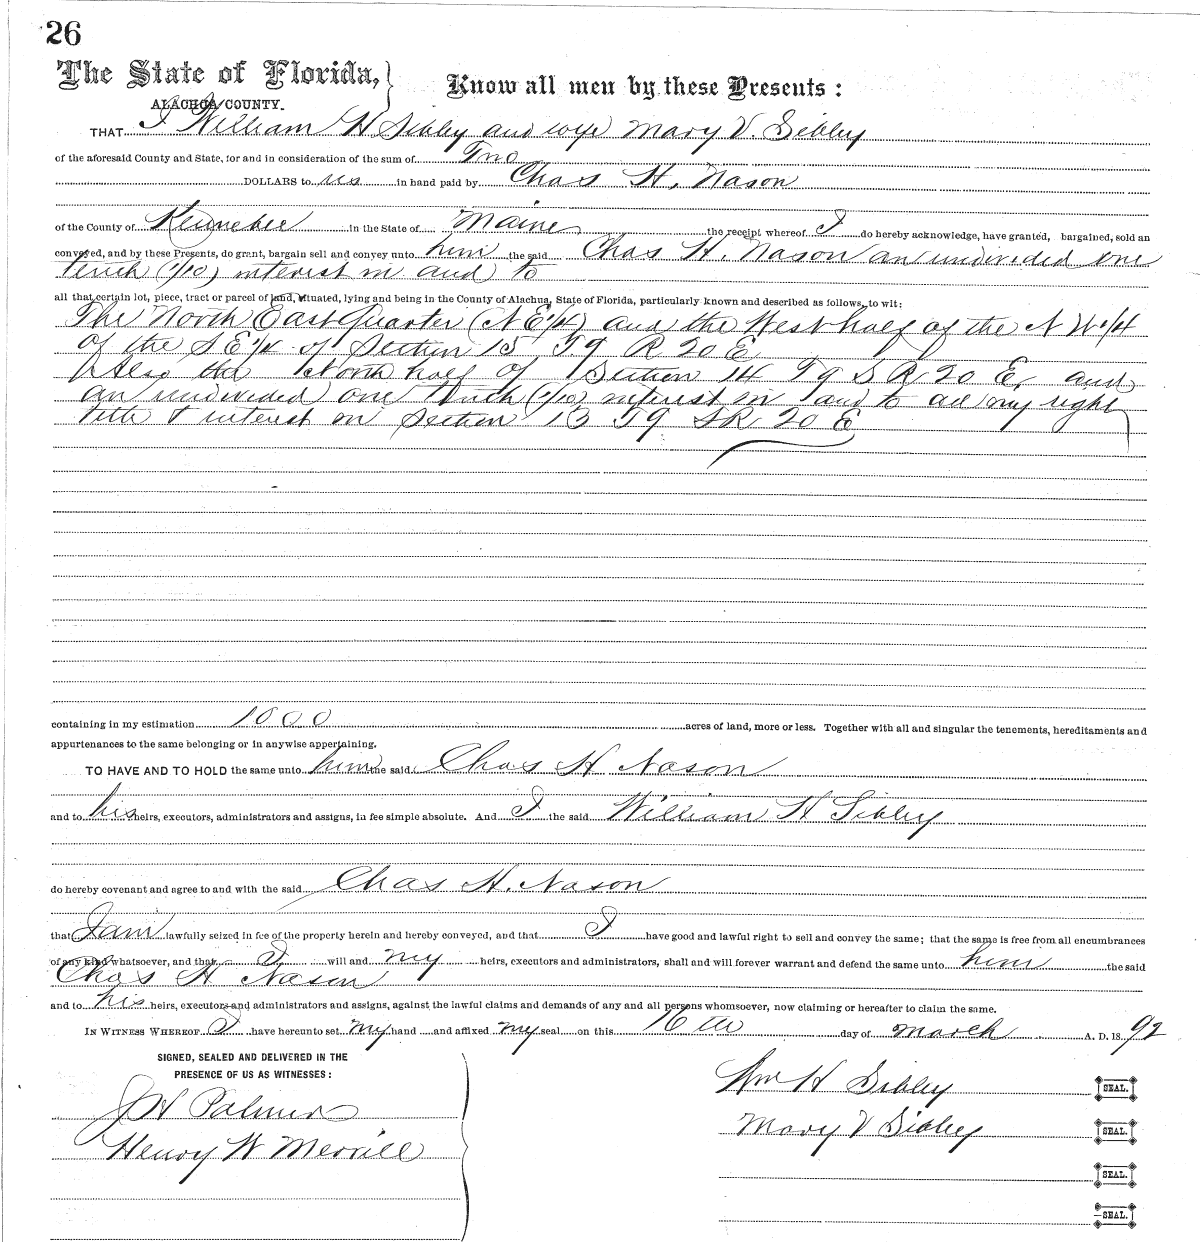 26
The State of Florida,
ALACHUA COUNTY.
Know all men by these Presents:
THAT I William H Sibley and wife Mary V. Sibley
of the aforesaid County and State, for and in consideration of the sum of Two
DOLLARS to us in hand paid by Chas H. Nason
of the County of Kennebec in the State of Maine the receipt whereof I do hereby acknowledge, have granted, bargained, sold an
conveyed, and by these Presents, do grant, bargain sell and convey unto him the said Chas H. Nason an undivided one
tenth (1/10) interest in and to
all that certain lot, piece, tract or parcel of land, situated, lying and being in the County of Alachua, State of Florida, particularly known and described as follows, to wit:
The North East Quarter (N E 1/4) and the West half of the N W 1/4
of the S E 1/4 of Section 15 T9 R 20 E
Also the North half of Section 14 T9 S R 20 E, and
an undivided one tenth (1/10) interest in and to all my right
title & interest in Section 13 T9 S R 20 E
containing in my estimation 1000 acres of land, more or less. Together with all and singular the tenements, hereditaments and
appurtenances to the same belonging or in anywise appertaining.
TO HAVE AND TO HOLD the same unto him the said Chas H Nason
and to his heirs, executors, administrators and assigns, in fee simple absolute. And I the said William H Sibley
do hereby covenant and agree to and with the said Chas H. Nason
that I am lawfully seized in fee of the property herein and hereby conveyed, and that I have good and lawful right to sell and convey the same; that the same is free from all encumbrances
of any kind whatsoever, and that I will and my heirs, executors and administrators, shall and will forever warrant and defend the same unto him the said
Chas H Nason
and to his heirs, executors and administrators and assigns, against the lawful claims and demands of any and all persons whomsoever, now claiming or hereafter to claim the same.
IN WITNESS WHEREOF I have hereunto set my hand and affixed my seal on this 16th day of March A. D. 1892
SIGNED, SEALED AND DELIVERED IN THE
PRESENCE OF US AS WITNESSES:
J H Palmer
Henry W Merrill
Wm H Sibley SEAL.
Mary V Sibley SEAL.
SEAL.
SEAL.